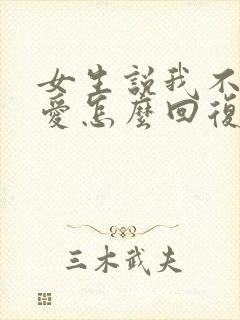 女生説我不
愛怎麼回復
三木武夫